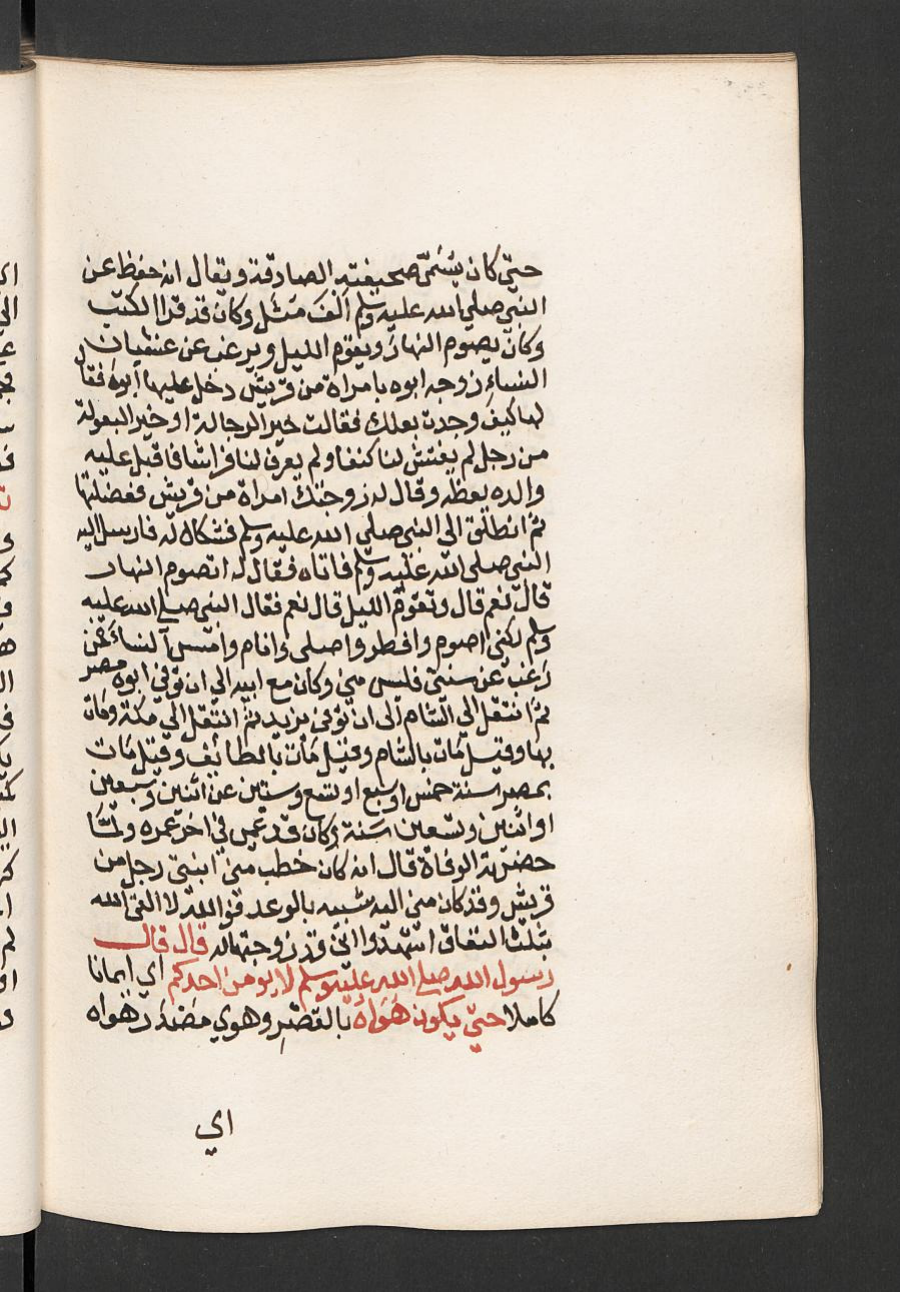 حتي كان يسمي صحيفته الصادقة ويقال انه حفظ عن
النبي صلي الله عليه وسلم الف مثل وكان قد قرا الكتب
وكان يصوم النهار ويقوم الليل ويرغب عن غشيان
النساء زوجه ابوه بامراة من قريش دخل عليها ابوه فقال
لها كيف وجدت بعلك فقالت خير الرجالة او خير البعولة
من رجل لم يفتش لنا كنفا ولم يعرف لنا فراشا فاقبل عليه
والده يعظه وقال له زوجتك امراة من قريش فعضلتها
ثم انطلق الي النبي صلي الله عليه وسلم فشكاه له فارسل اليه
النبي صلي الله عليه وسلم فاتاه فقال له اتصوم النهار
قال نعم قال وتقوم الليل قال نعم فقال النبي صلي الله عليه
وسلم لكني اصوم وافطر واصلي وانام وامس النساء فمن
رغب عن سنتي فليس مني وكان مع ابيه الي ان توفي ابوه بمصر
ثم انتقل الي الشام الي ان توفي يزيد ثم انتقل الي مكة ومات
بها وقيل مات بالشام وقيل مات بالطائف وقيل مات
بمصر سنة خمس او سبع او تسع وستين عن اثنين وسبعين
او اثنين وتسعين سنة وكان قد عمي في اخر عمره ولما
حضرته الوفاة قال انه كان خطب مني ابنتي رجل من
قريش وقد كان مني اليه شبيه بالوعد فوالله لا القي الله
بثلث النفاق اشهدوا اني قد زوجتها له قال قال
رسول الله صلي الله عليه وسلم لا يومن احدكم اي ايمانا
كاملا حتي يكون هواه بالقصر وهوي مصدر هواه
اي